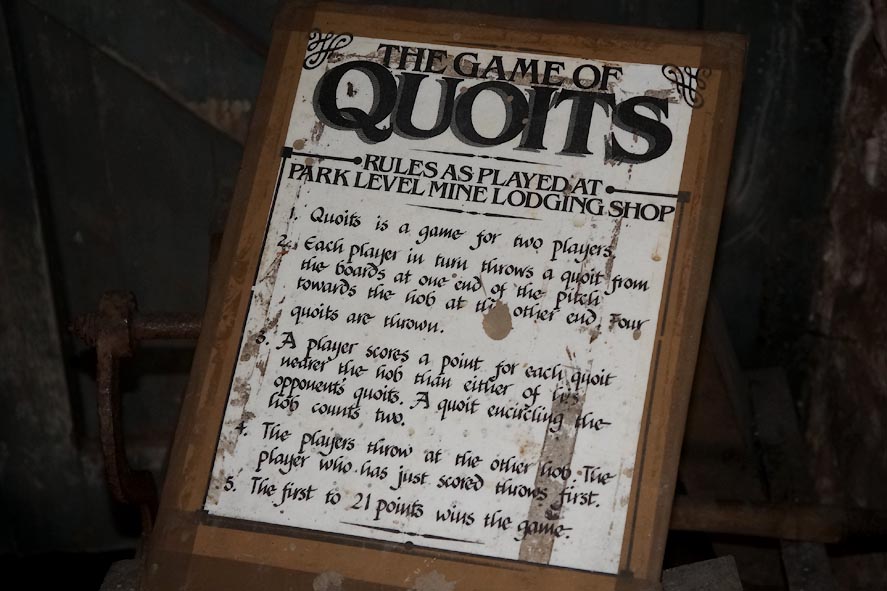 THE GAME OF
QUOITS
RULES AS PLAYED AT
PARK LEVEL MINE LODGING SHOP
1. Quoits is a game for two players.
2. Each player in turn throws a quoit from
the boards at one end of the pitch
towards the hob at the other end. Four
quoits are thrown.
3. A player scores a point for each quoit
nearer the hob than either of his
opponents' quoits. A quoit encircling the
hob counts two.
4. The players throw at the other hob. The
player who has just scored throws first.
5. The first to 21 points wins the game.